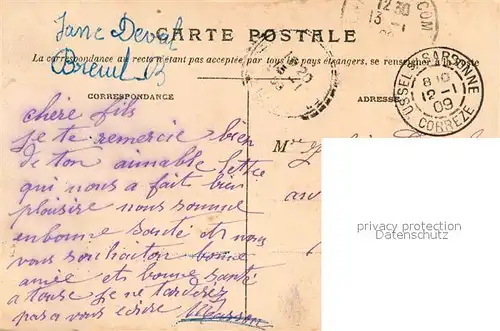 Jane Deval
Breuil B
CARTE POSTALE
La correspondance au recto n'étant pas acceptée, par tous les pays étrangers, se renseigner à la
CORRESPONDANCE
ADRESSE
12 30
13 -1
COM
USSEL S. SARSONNE
8 10
12 -11
09
CORREZE
chère fils
je te remercie bien
de ton annable lettre
qui nous a fait bien
plaisire nous somme
enbonne santé et nous
vous souhaiton bonne
amie et bonne santé
a touse je ne tarderez
pas a vous ecrire Masson
Mr
privacy protection
Datenschutz